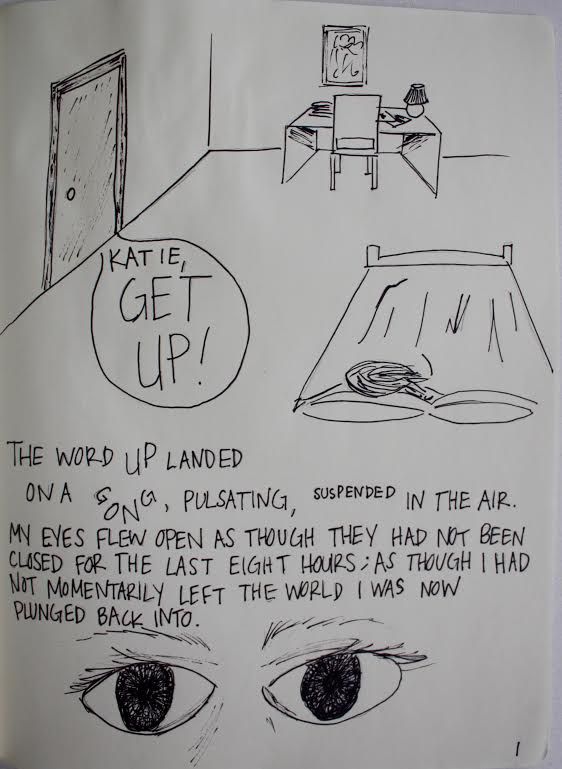 KATIE,
GET
UP!
THE WORD UP LANDED
ON A SONG, PULSATING, SUSPENDED IN THE AIR.
MY EYES FLEW OPEN AS THOUGH THEY HAD NOT BEEN
CLOSED FOR THE LAST EIGHT HOURS; AS THOUGH I HAD
NOT MOMENTARILY LEFT THE WORLD I WAS NOW
PLUNGED BACK INTO.
1